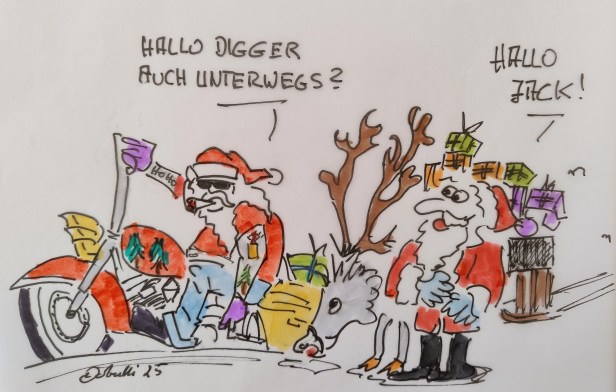 HALLO DIGGER
AUCH UNTERWEGS?
HALLO
JACK!
HOHO
25